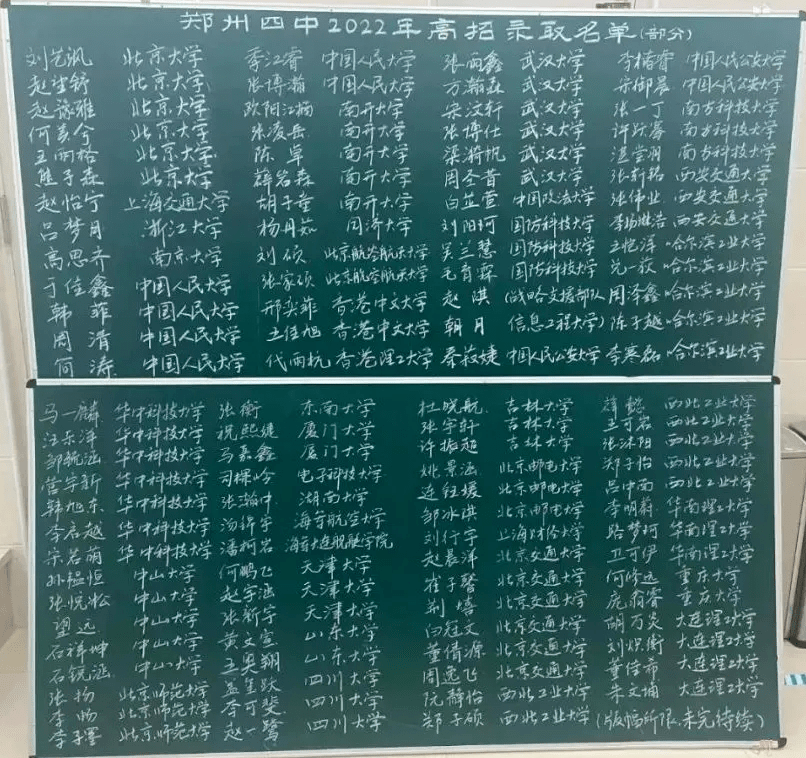 郑州四中2022年高招录取名单(部分)
刘艺飒 北京大学 季江睿 中国人民大学 张雨鑫 武汉大学 李椿睿 中国人民公安大学
赵 舒 北京大学 张博瀚 中国人民大学 万瀚森 武汉大学 宋御晨 中国人民公安大学
赵豫雅 北京大学 欧阳江楠 南开大学 宋汶轩 武汉大学 张一丁 南方科技大学
何美今 北京大学 张凌岳 南开大学 张博仕 武汉大学 许跃馨 南方科技大学
王雨格 北京大学 陈卓 南开大学 梁漪帆 武汉大学 温 羽 南方科技大学
熊子森 北京大学 薛岩森 南开大学 周圣昔 武汉大学 张 铭 西安交通大学
赵怡宁 上海交通大学 胡子童 南开大学 白芷萱 中国政法大学 张伟业 西安交通大学
吕梦月 浙江大学 杨丹茹 同济大学 刘阳珂 国防科技大学 李杨滟浩 西安交通大学
高思齐 南京大学 刘硕 北京航空航天大学 吴兰慧 国防科技大学 王恺泽 哈尔滨工业大学
丁佳鑫 中国人民大学 张家硕 北京航空航天大学 毛育霖 国防科技大学 元一荻 哈尔滨工业大学
韩菲 中国人民大学 邢奕菲 香港中文大学 赵淇 (战略支援部队 周泽鑫 哈尔滨工业大学
周清 中国人民大学 王佳旭 香港中文大学 朝月 信息工程大学) 陈子越 哈尔滨工业大学
简涛 中国人民大学 代雨杭 香港理工大学 秦菽婕 中国人民公安大学 李寒磊 哈尔滨工业大学
马一麟 华中科技大学 张衡 东南大学 杜晓航 吉林大学 薛懿 西北工业大学
汪乐洋 华中科技大学 祝熙婕 厦门大学 张宇轩 吉林大学 王可岩 西北工业大学
邹毓涵 华中科技大学 马嘉鑫 厦门大学 许振超 吉林大学 张沐阳 西北工业大学
营宇新 华中科技大学 司棵吟 电子科技大学 姚景涵 北京邮电大学 郑子怡 西北工业大学
韩旭东 华中科技大学 张瀚中 湖南大学 连钰媛 北京邮电大学 吕中南 西北工业大学
李启越 华中科技大学 汤梓宇 海军航空大学 邹冰淇 北京邮电大学 李明蔚 华南理工大学
宋若萌 华中科技大学 潘柯岩 海军大连舰艇学院 刘行宇 上海财经大学 路梦珂 华南理工大学
孙韫恒 中山大学 何鹏飞 天津大学 赵晨洋 北京交通大学 卫可伊 华南理工大学
张悦淞 中山大学 赵宇涵 天津大学 崔子馨 北京交通大学 何修远 重庆大学
望远 中山大学 张新宇 天津大学 荆熺 北京交通大学 庞翕睿 重庆大学
石祥坤 中山大学 黄文宣 山东大学 闫冠文 北京交通大学 胡万炎 大连理工大学
石锐涵 中山大学 王奥翔 山东大学 董倩源 北京交通大学 刘炽衡 大连理工大学
张杨 北京师范大学 孟星跃 四川大学 周逸飞 北京交通大学 董佳希 大连理工大学
李畅 北京师范大学 李可斐 四川大学 阮静怡 西北工业大学 朱文埔 大连理工大学
李子墨 北京师范大学 赵一鹭 四川大学 郑子硕 西北工业大学 (版幅所限,未完待续)